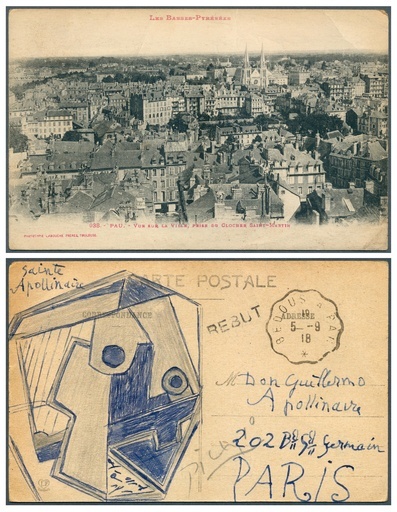 LES BASSES-PYRÉNÉES
PAU. - VUE SUR LA VILLE, PRISE DU CLOCHER SAINT-MARTIN
PHOTOTYPIE LABOUCHE FRÈRES, TOULOUSE
Sainte
Apollinaire
CARTE POSTALE
CORRESPONDANCE
ADRESSE
REBUT
BEDOUS A PAU
5-9
18
M. Don Guillermo
Apollinaire
202 Bd St Germain
PARIS
Picasso